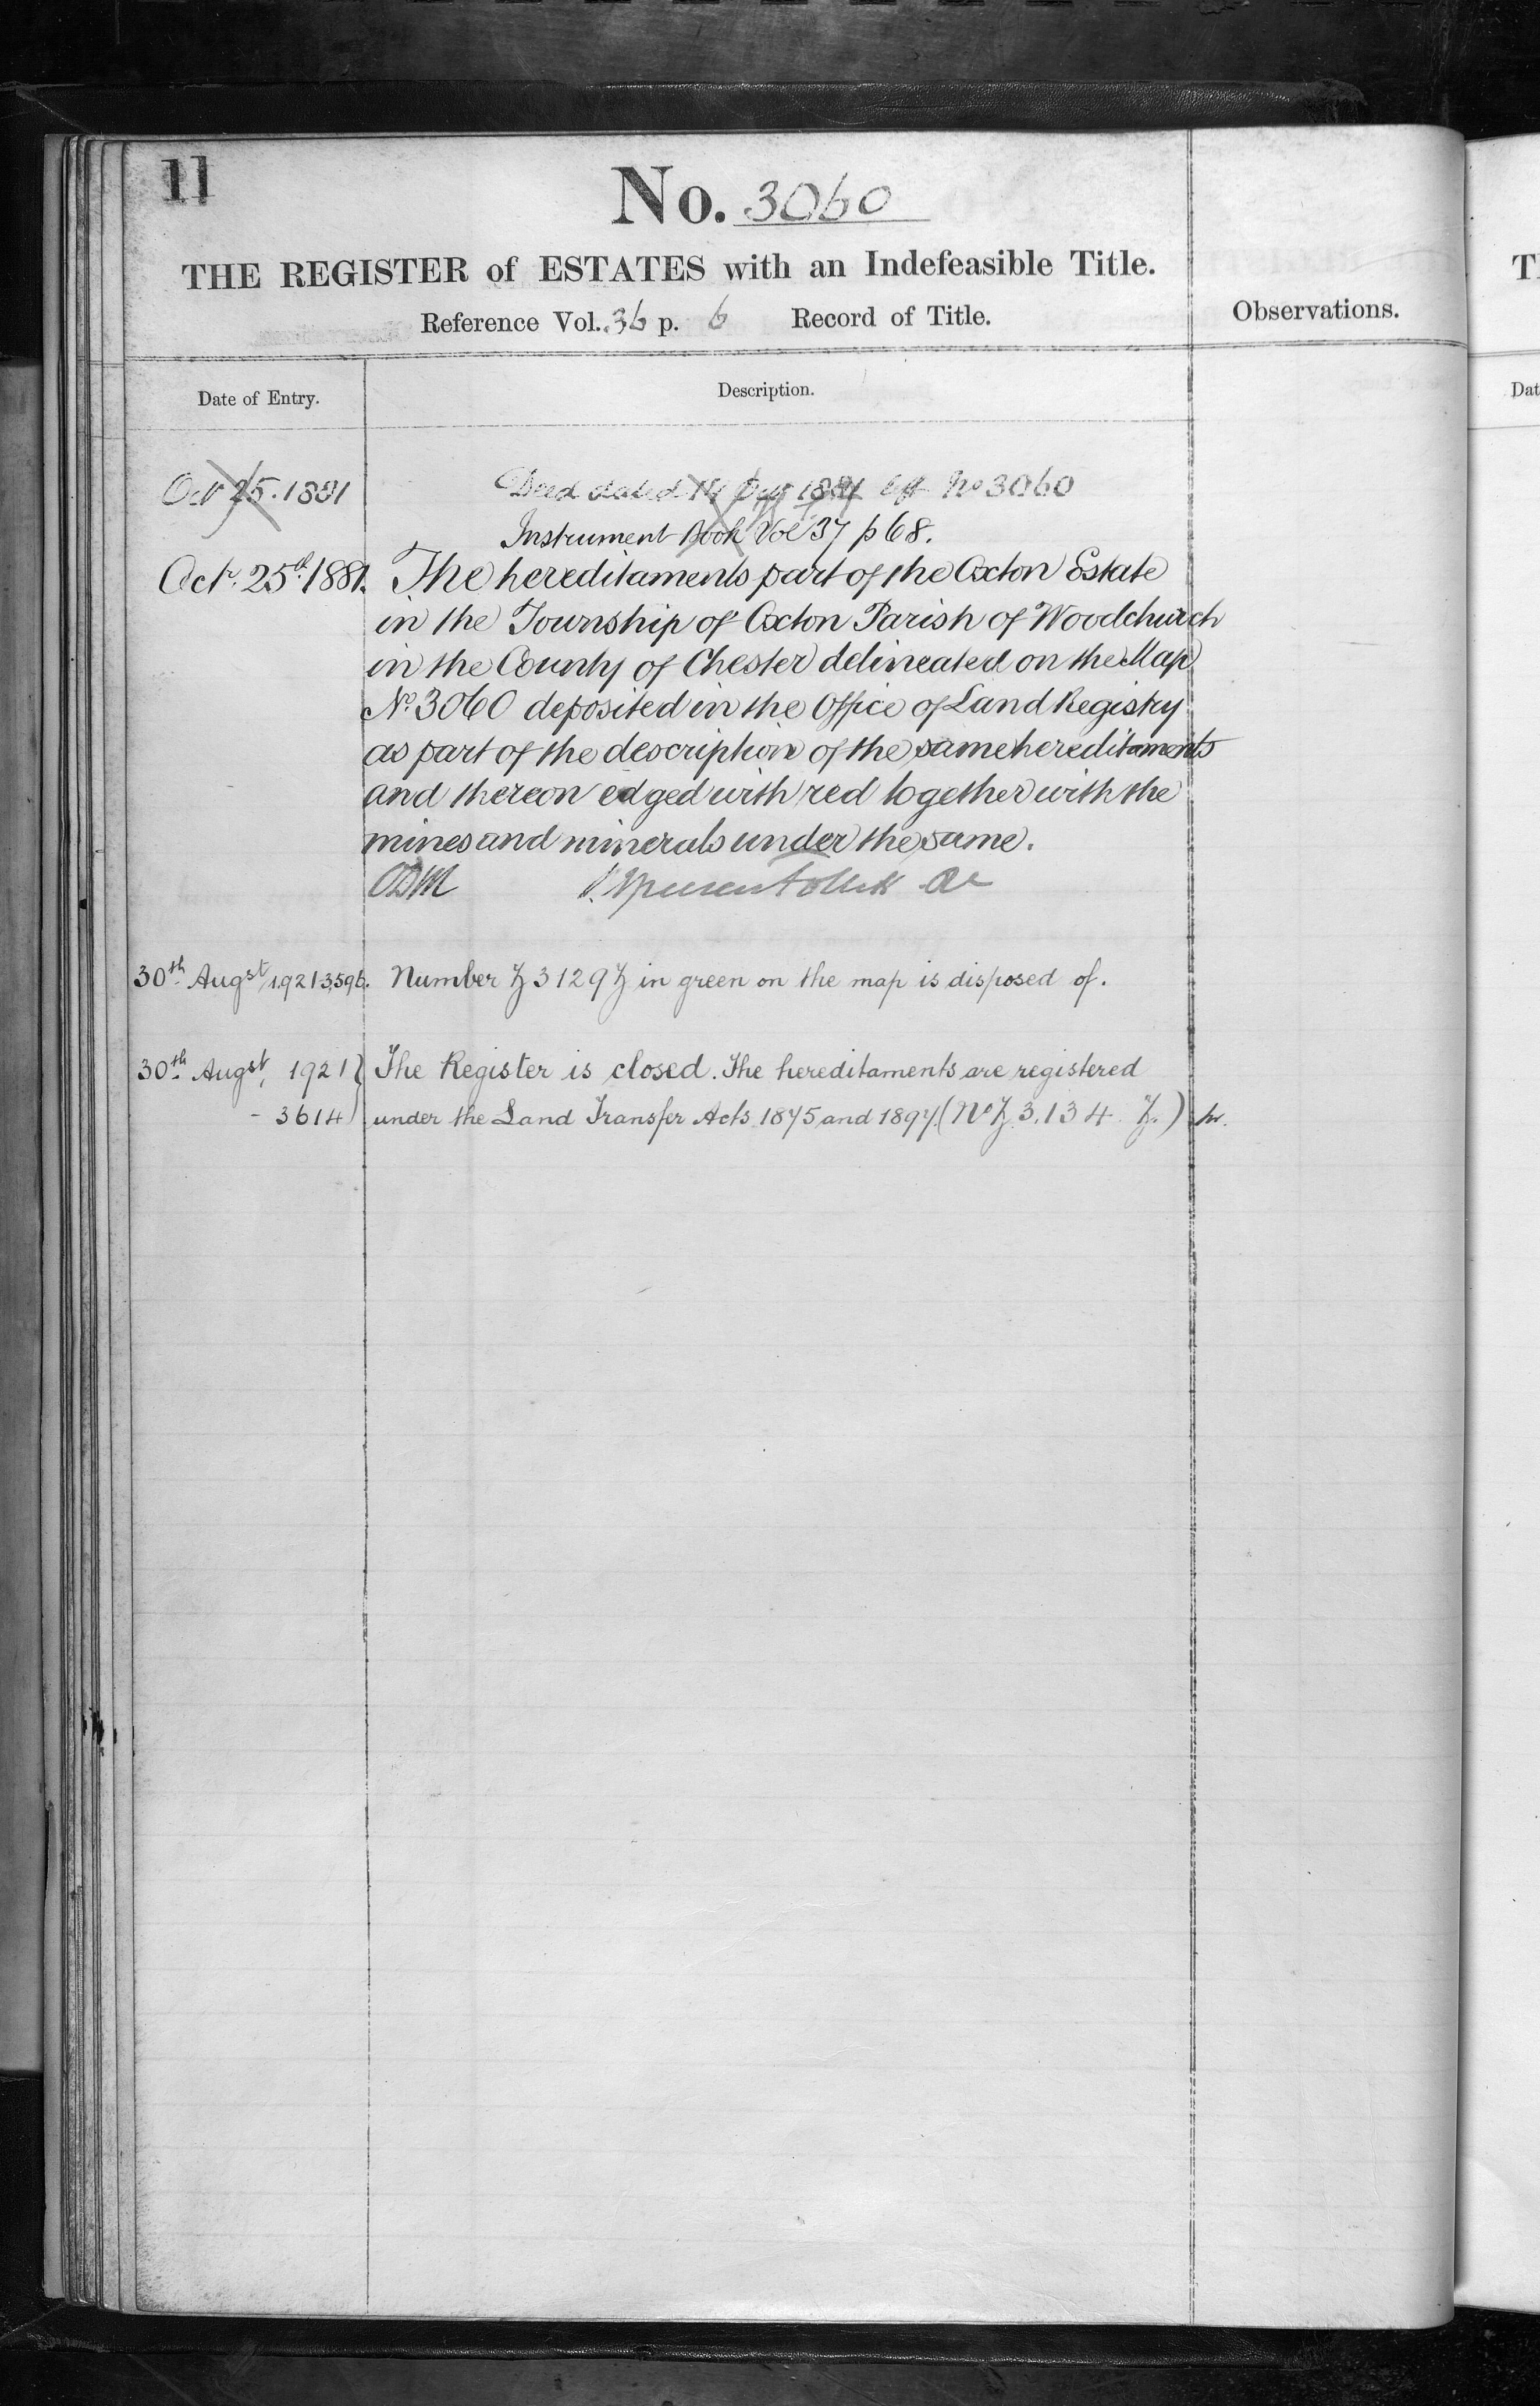 11
No. 3060
THE REGISTER of ESTATES with an Indefeasible Title.
Reference Vol. 36 p. 6 Record of Title.
Observations.
Date of Entry.
Description.
Oct 25. 1881 Deed dated 1881 No 3060
Instrument Book Vol 37 p 68.
Octr. 25th. 1881. The hereditaments part of the Oxton Estate
in the Township of Oxton Parish of Woodchurch
in the County of Chester delineated on the Map
No. 3060 deposited in the Office of Land Registry
as part of the description of the same hereditaments
and thereon edged with red together with the
mines and minerals under the same.
30th Augst, 1921 3,596. Number Z 3129 Z in green on the map is disposed of.
30th Augst, 1921 } The Register is closed. The hereditaments are registered
- 3614 } under the Land Transfer Acts 1875 and 1897. (No Z. 3.134 Z.)
T
Dat